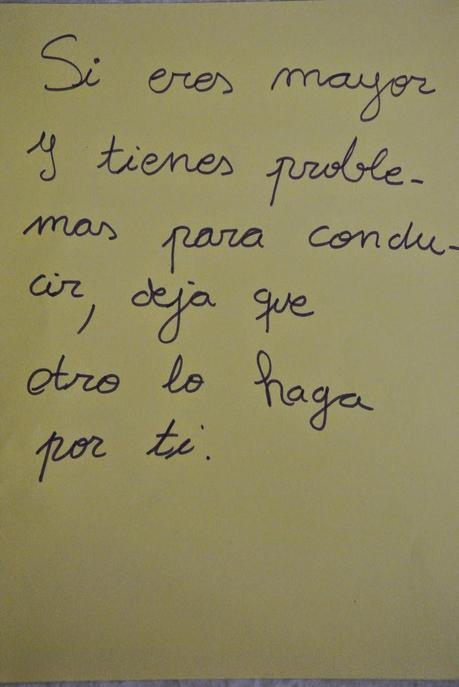 Si eres mayor
y tienes proble-
mas para condu-
cir, deja que
otro lo haga
por ti.